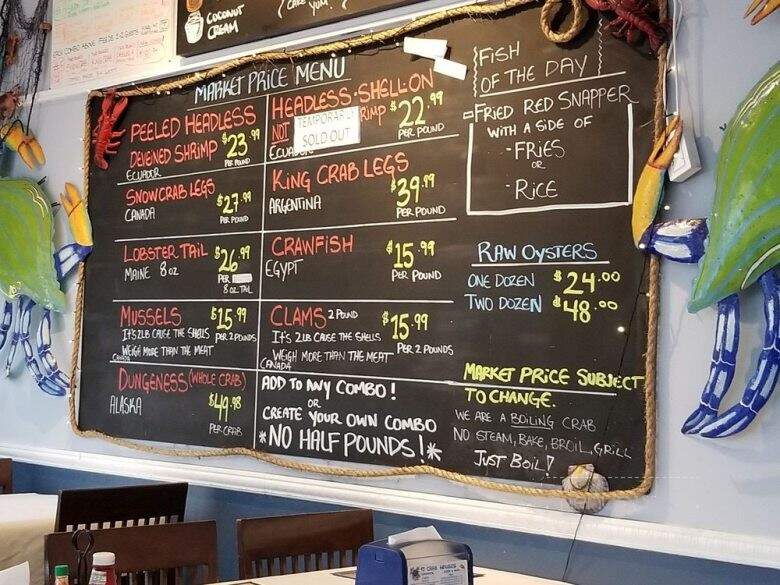 COCONUT
CREAM
CAKE
YUM
MARKET PRICE MENU
PEELED HEADLESS
DEVEINED SHRIMP $23.99
PER POUND
ECUADOR
HEADLESS-SHELL ON
NOT
TEMPORARILY
SOLD OUT
$22.99
PER POUND
SNOWCRAB LEGS
CANADA
$27.99
PER POUND
KING CRAB LEGS
ARGENTINA
$39.99
PER POUND
LOBSTER TAIL
MAINE 8 OZ
$26.99
PER
8 OZ. TAIL
CRAWFISH
EGYPT
$15.99
PER POUND
MUSSELS $15.99
IT'S 2LB CAUSE THE SHELLS PER 2 POUNDS
WEIGH MORE THAN THE MEAT
CANADA
CLAMS 2 POUND $15.99
IT'S 2LB CAUSE THE SHELLS
WEIGH MORE THAN THE MEAT PER 2 POUNDS
CANADA
DUNGENESS (WHOLE CRAB)
ALASKA
$49.98
PER CRAB
ADD TO ANY COMBO!
OR
CREATE YOUR OWN COMBO
*NO HALF POUNDS!*
FISH
OF THE DAY
-FRIED RED SNAPPER
WITH A SIDE OF
-FRIES
OR
-RICE
RAW OYSTERS
ONE DOZEN $24.00
TWO DOZEN $48.00
MARKET PRICE SUBJECT
TO CHANGE.
WE ARE A BOILING CRAB
NO STEAM, BAKE, BROIL, GRILL
JUST BOIL!